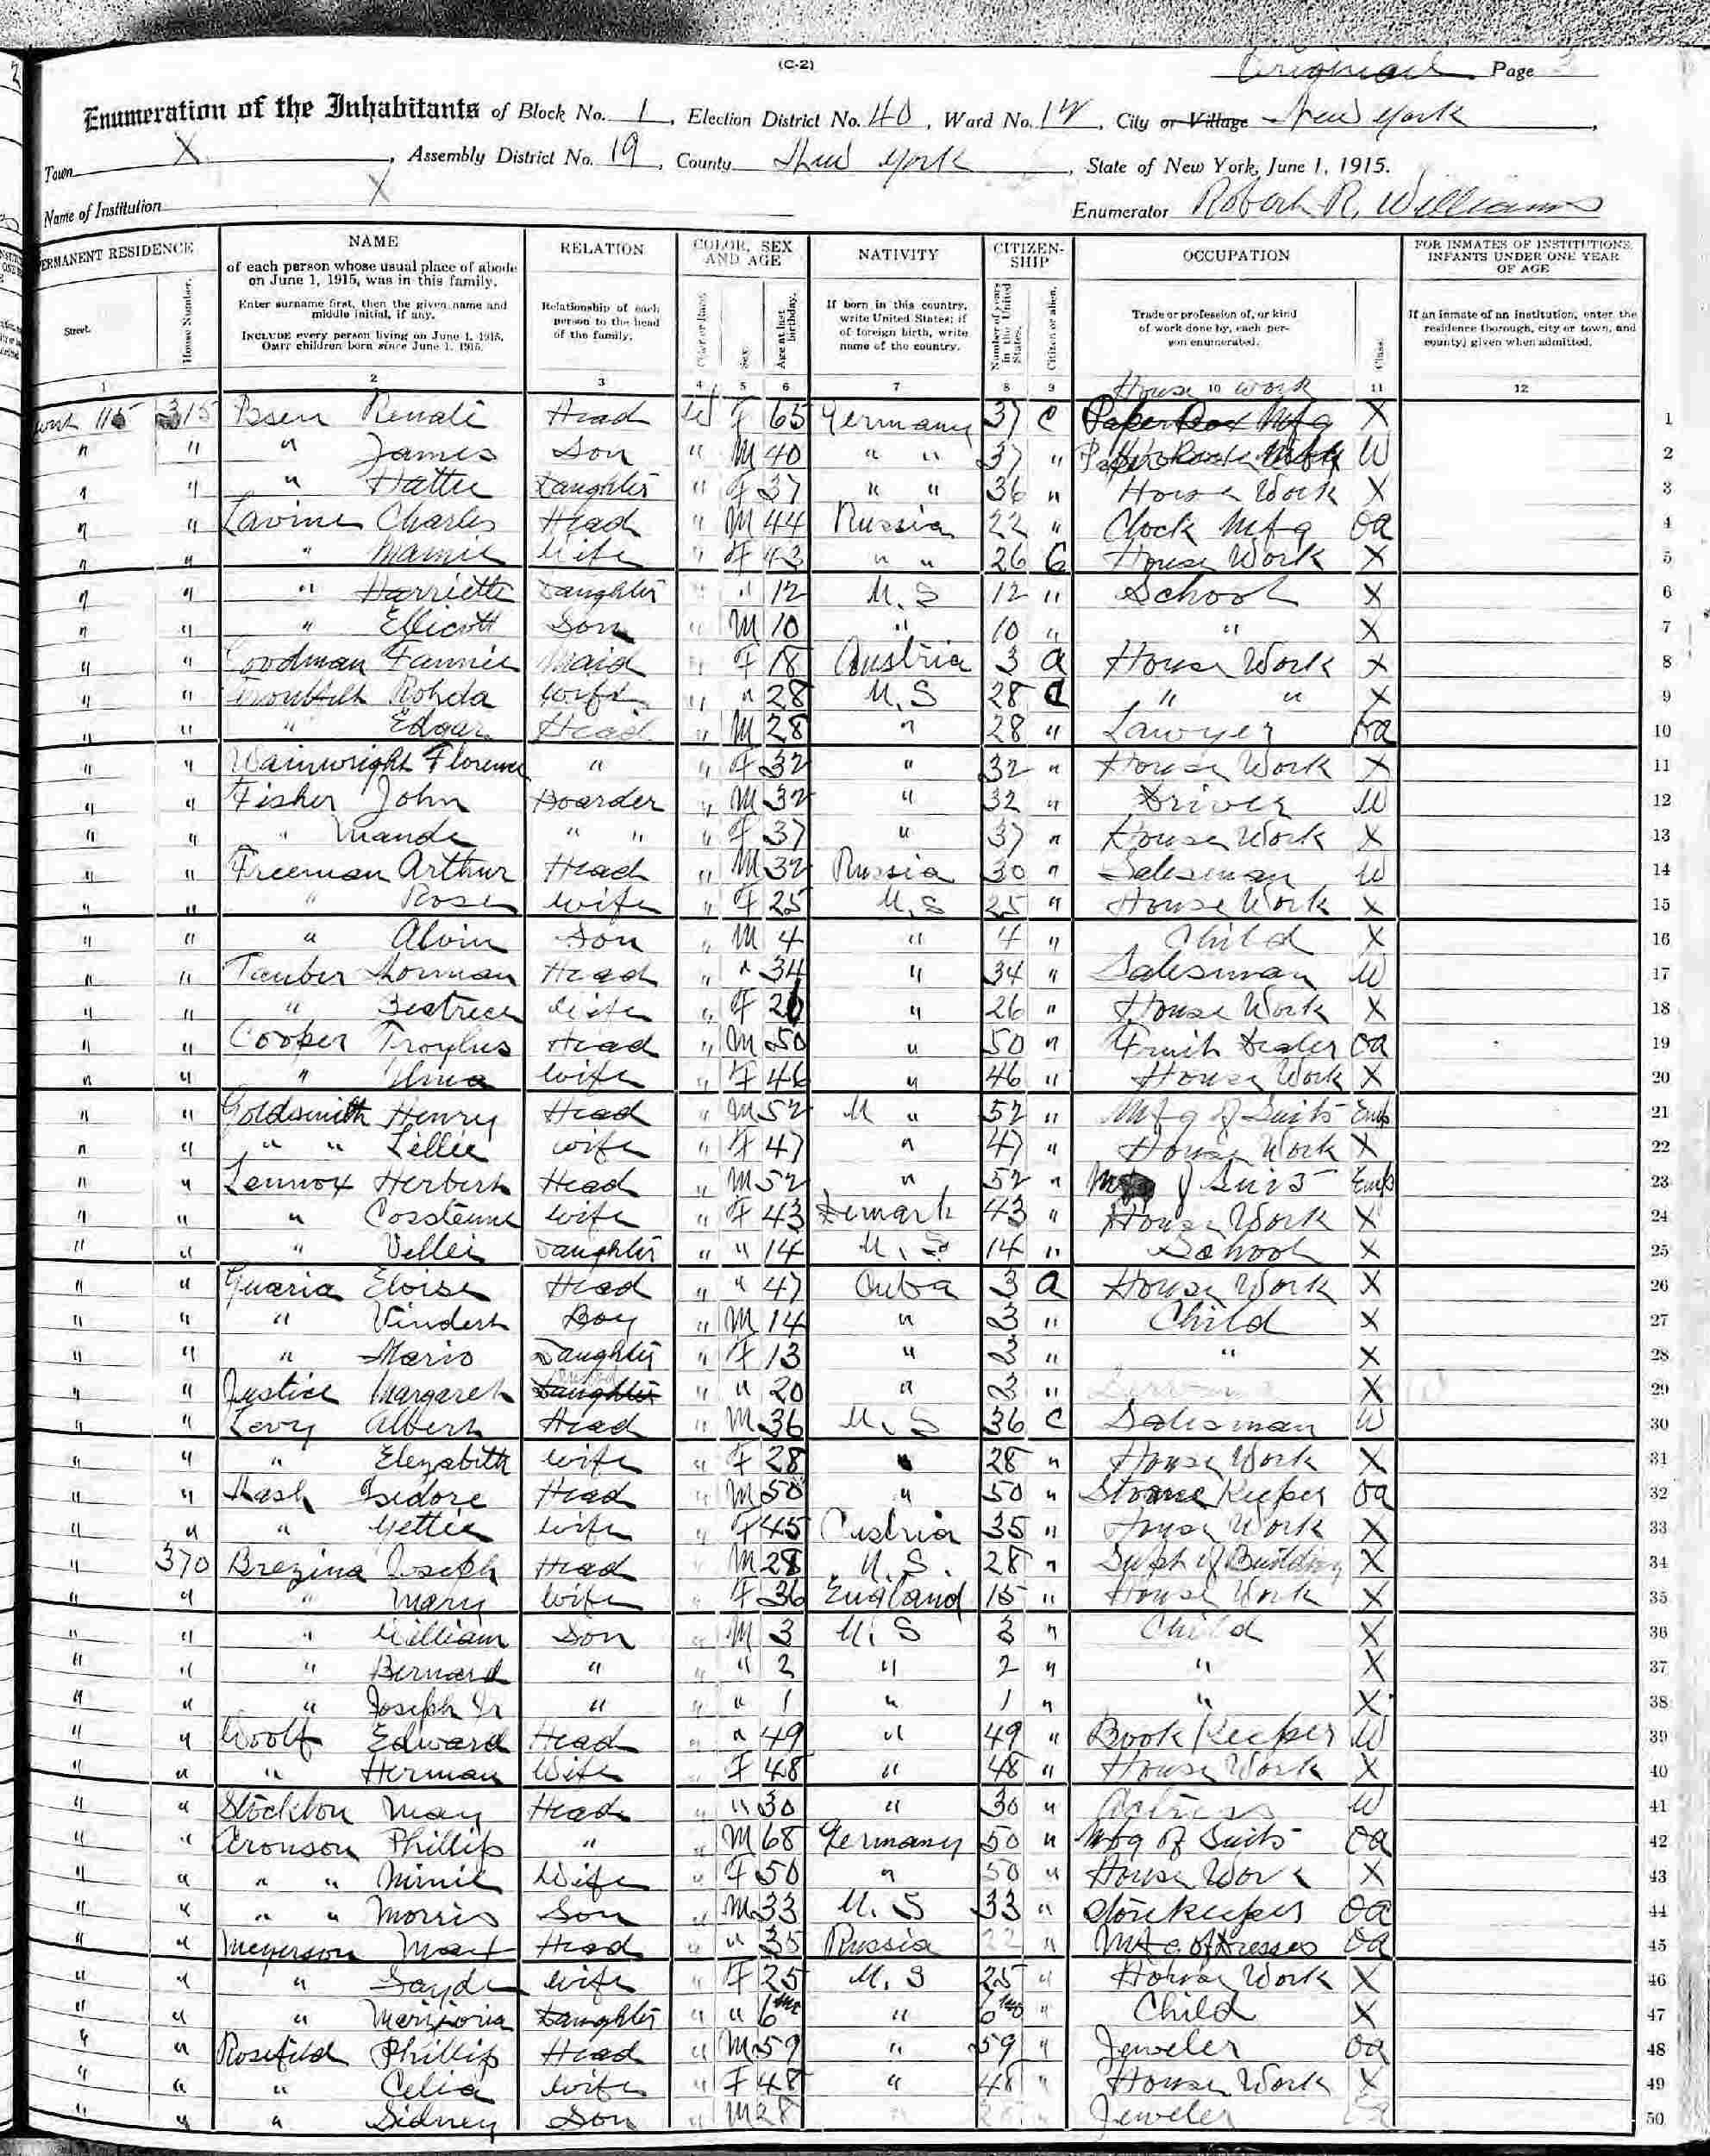 (C-2)
Original Page 3
Enumeration of the Inhabitants of Block No. 1, Election District No. 40, Ward No. 12, City or Village New York,
Town X, Assembly District No. 19, County New York, State of New York, June 1, 1915.
Name of Institution X Enumerator Robert R. Williams
PERMANENT RESIDENCE NAME RELATION COLOR, SEX AND AGE NATIVITY CITIZENSHIP OCCUPATION FOR INMATES OF INSTITUTIONS, INFANTS UNDER ONE YEAR OF AGE
Street. House Number. of each person whose usual place of abode on June 1, 1915, was in this family. Enter surname first, then the given name and middle initial, if any. INCLUDE every person living on June 1, 1915. OMIT children born since June 1, 1915. Relationship of each person to the head of the family. Color or Race. Sex. Age at last birthday. If born in this country, write United States; if of foreign birth, write name of the country. Number of years in the United States. Citizen or alien. Trade or profession of, or kind of work done by, each person enumerated. Class. If an inmate of an institution, enter the residence (borough, city or town, and county) given when admitted.
1 2 3 4 5 6 7 8 9 10 11 12
House Work
West 115 315 Head W F 65 Germany 37 C Paper Box Mfg X 1
" " " James Son " M 40 " " 37 " Paper Box Mfg W 2
" " " Hattie Daughter " F 37 " " 36 " House Work X 3
" " Lavine Charles Head " M 44 Russia 22 " Clock Mfg OA 4
" " " Mamie Wife " F 43 " " 26 C House Work X 5
" " " Harriette Daughter " " 12 U.S 12 " School X 6
" " " Ellicott Son " M 10 " 10 " " X 7
" " Goodman Fannie Maid " F 18 Austria 3 a House Work X 8
" " Rohda Wife " " 28 U.S 28 C " " X 9
" " " Edgar Head " M 28 " 28 " Lawyer oa 10
" " Wainwright Florence " " F 32 " 32 " House Work X 11
" " Fisher John Boarder " M 32 " 32 " Driver W 12
" " " Maude " " " F 37 " 37 " House Work X 13
" " Freeman Arthur Head " M 32 Russia 30 " Salesman W 14
" " " Rose Wife " F 25 U.S 25 " House Work X 15
" " " Alvin Son " M 4 " 4 " Child X 16
" " Tauber Norman Head " " 34 " 34 " Salesman W 17
" " " Beatrice Wife " F 26 " 26 " House Work X 18
" " Cooper Troylus Head " M 50 " 50 " Fruit Dealer oa 19
" " " Alma Wife " F 46 " 46 " House Work X 20
" " Goldsmith Henry Head " M 52 U " 52 " Mfg of Suits Emp 21
" " " " Lillie Wife " F 47 " 47 " House Work X 22
" " Lennox Herbert Head " M 52 " 52 " Mfg of Suits Emp 23
" " " Wife " F 43 Demark 43 " House Work X 24
" " " Vellei Daughter " " 14 U.S 14 " School X 25
" " Guaria Eloise Head " " 47 Cuba 3 a House Work X 26
" " " Vindert Boy " M 14 " 3 " Child X 27
" " " Mario Daughter " F 13 " 3 " " X 28
" " Justice Margaret Daughter " " 20 " 3 " X W 29
" " Levy Albert Head " M 36 U.S 36 C Salesman W 30
" " " Elezabith Wife " F 28 " 28 " House Work X 31
" " Isedore Head " M 50 " 50 " Store Keeper oa 32
" " " Yettie Wife " F 45 Austria 35 " House Work X 33
" 370 Brezina Joseph Head " M 28 U.S. 28 " Supt of Building X 34
" " " Mary Wife " F 36 England 15 " House Work X 35
" " " William Son " M 3 U.S 3 " Child X 36
" " " Bernard " " " 2 " 2 " " X 37
" " " Joseph Jr " " " 1 " 1 " " X 38
" " Woolf Edward Head " " 49 " 49 " Book Keeper W 39
" " " Herman Wife " F 48 " 48 " House Work X 40
" " Stockton May Head " " 30 " 30 " Actress W 41
" " Aronson Phillip " M 68 Germany 50 " Mfg of Suits oa 42
" " " " Minie Wife " F 50 " 50 " House Work X 43
" " " " Morris Son " M 33 U.S 33 " Storekeeper OA 44
" " Meyerson Max Head " " 35 Russia 22 " Mfg of Dresses Oa 45
" " " Sayde Wife " F 25 U.S 25 " House Work X 46
" " " Marijoria Daughter " " 6 mo " 6 mo " Child X 47
" " Rosefild Phillip Head " M 59 " 59 " Jeweler oa 48
" " " Celia Wife " F 48 " 48 " House Work X 49
" " " Sidney Son " M 28 " 28 " Jeweler 50